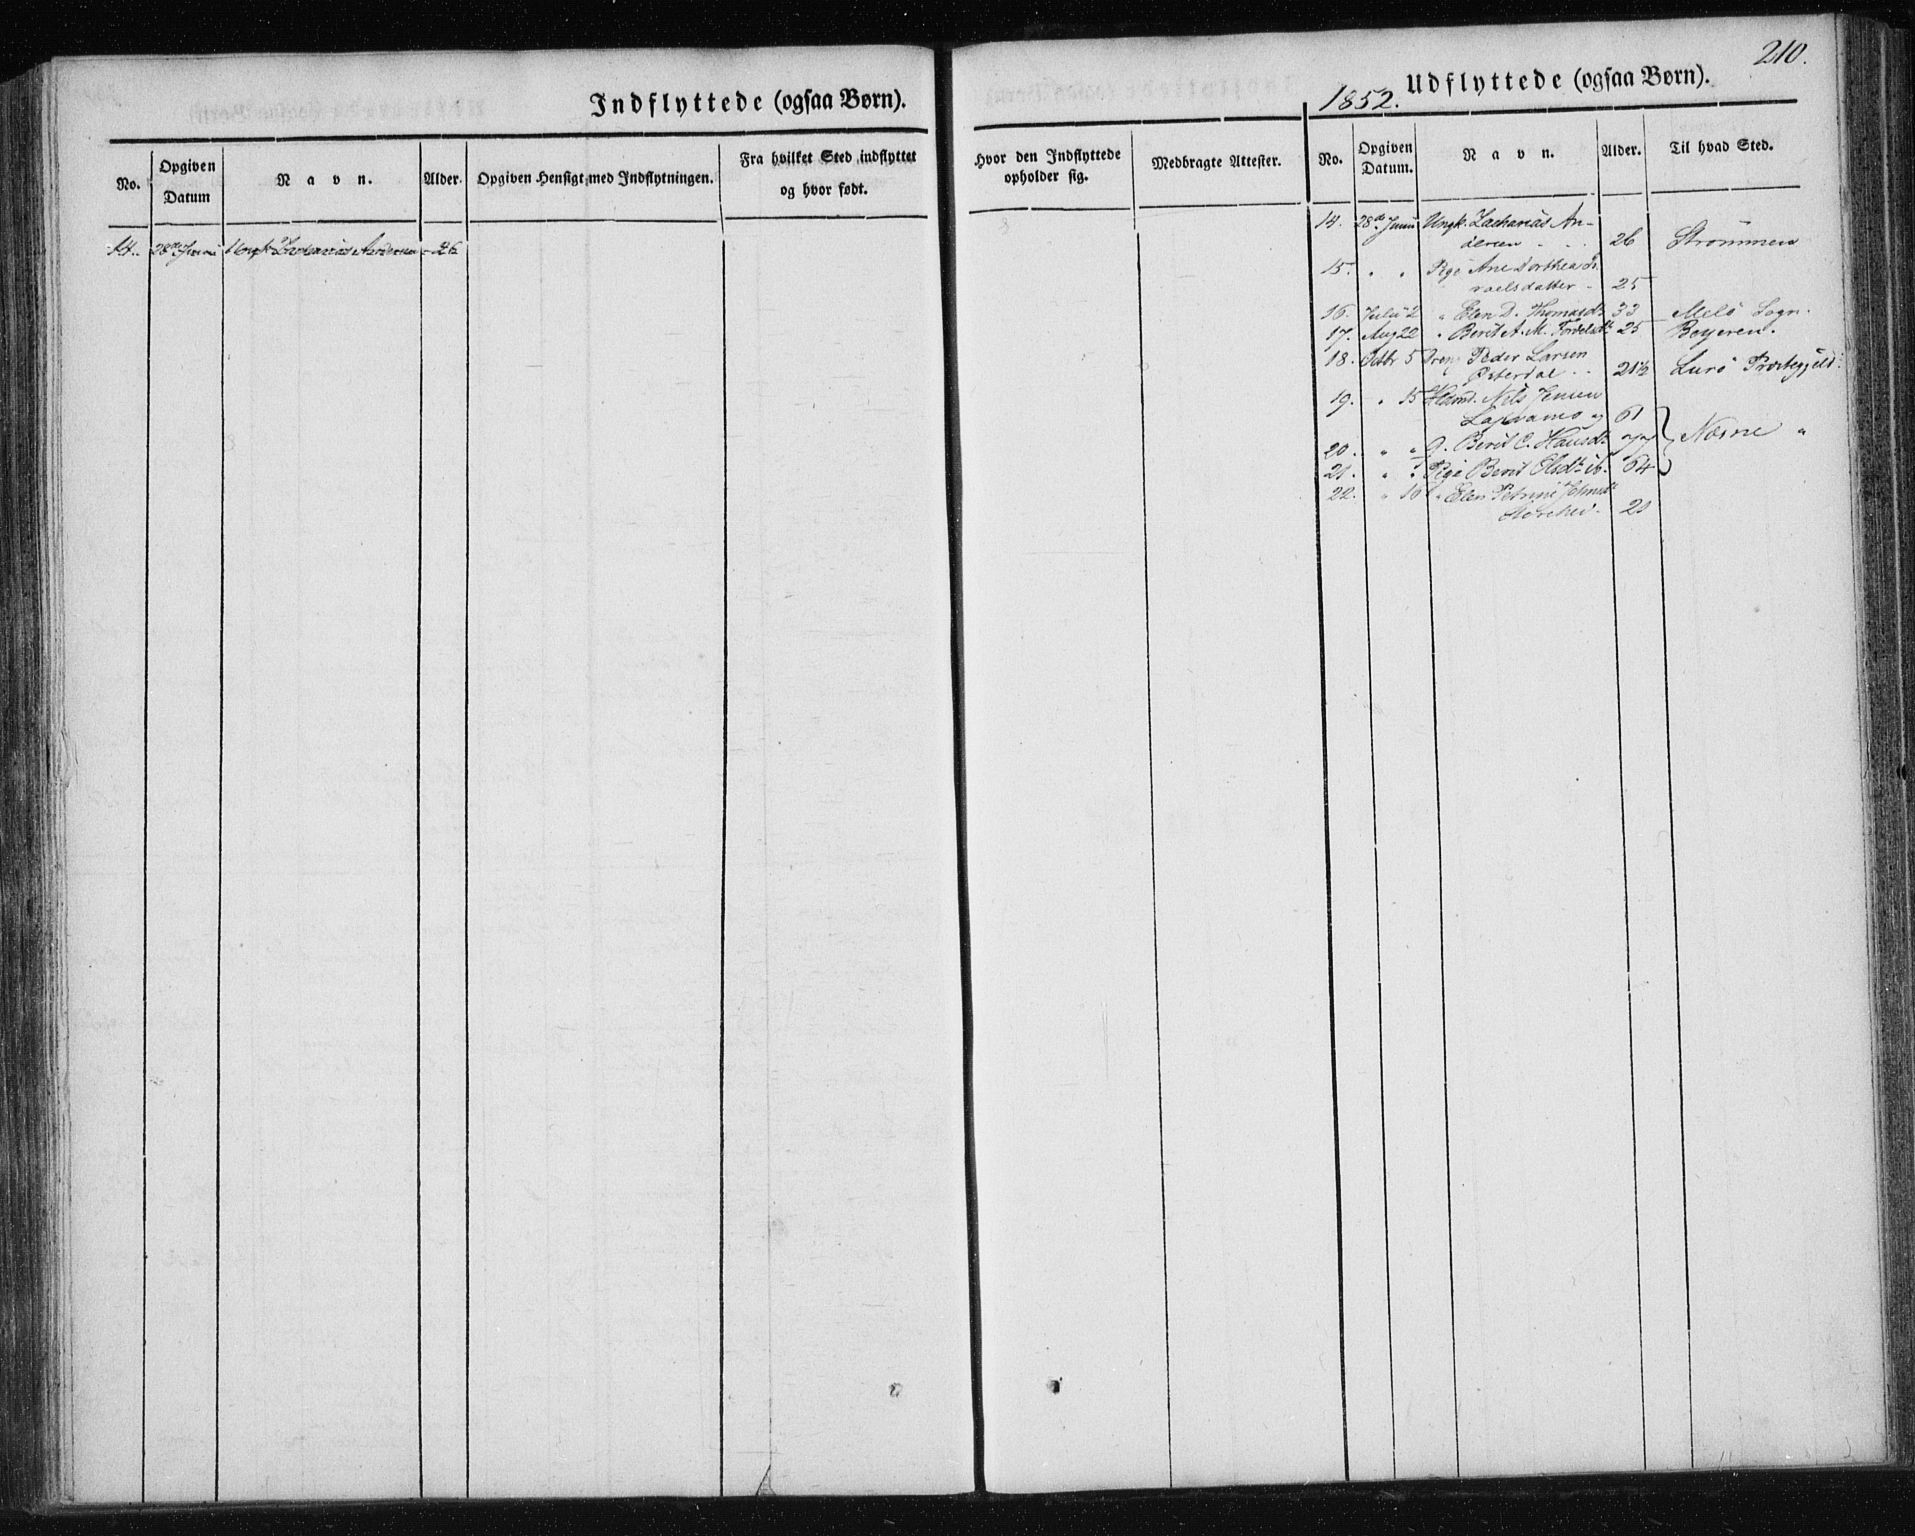 Indflyttede (ogsaa Børn).
No.
Opgiven
Datum
Navn.
Alder.
Opgiven Hensigt med Indflytningen.
Fra hvilket Sted indflyttet
og hvor født.
14. 28de Juni Ungk. Zacharias Andersen 26
210.
1852.
Udflyttede (ogsaa Børn).
Hvor den Indflyttede
opholder sig.
Medbragte Attester.
No.
Opgiven
Datum.
Navn.
Alder.
Til hvad Sted.
14. 28de Juni Ungk. Zacharias An-
dersen 26 Strømmen
15. " " Pige Ane Dorthea
raelsdatter 25
16. Juli 2 " Elen D. Thomasdr 33 Melø Sogn.
17. Aug 22 " Berit A. M. 25 Beyeren.
18. Octbr 5 Dreng Peder Larsen
Østerdal 21½ Lurø Præstegjeld.
19. " 15 Nils Jensen
og 61
20. " " Q. Berit C. Hansdr Næsne "
21. " " Pige Berit Olsdr 64
22. " 16 " Elen Petrine
21